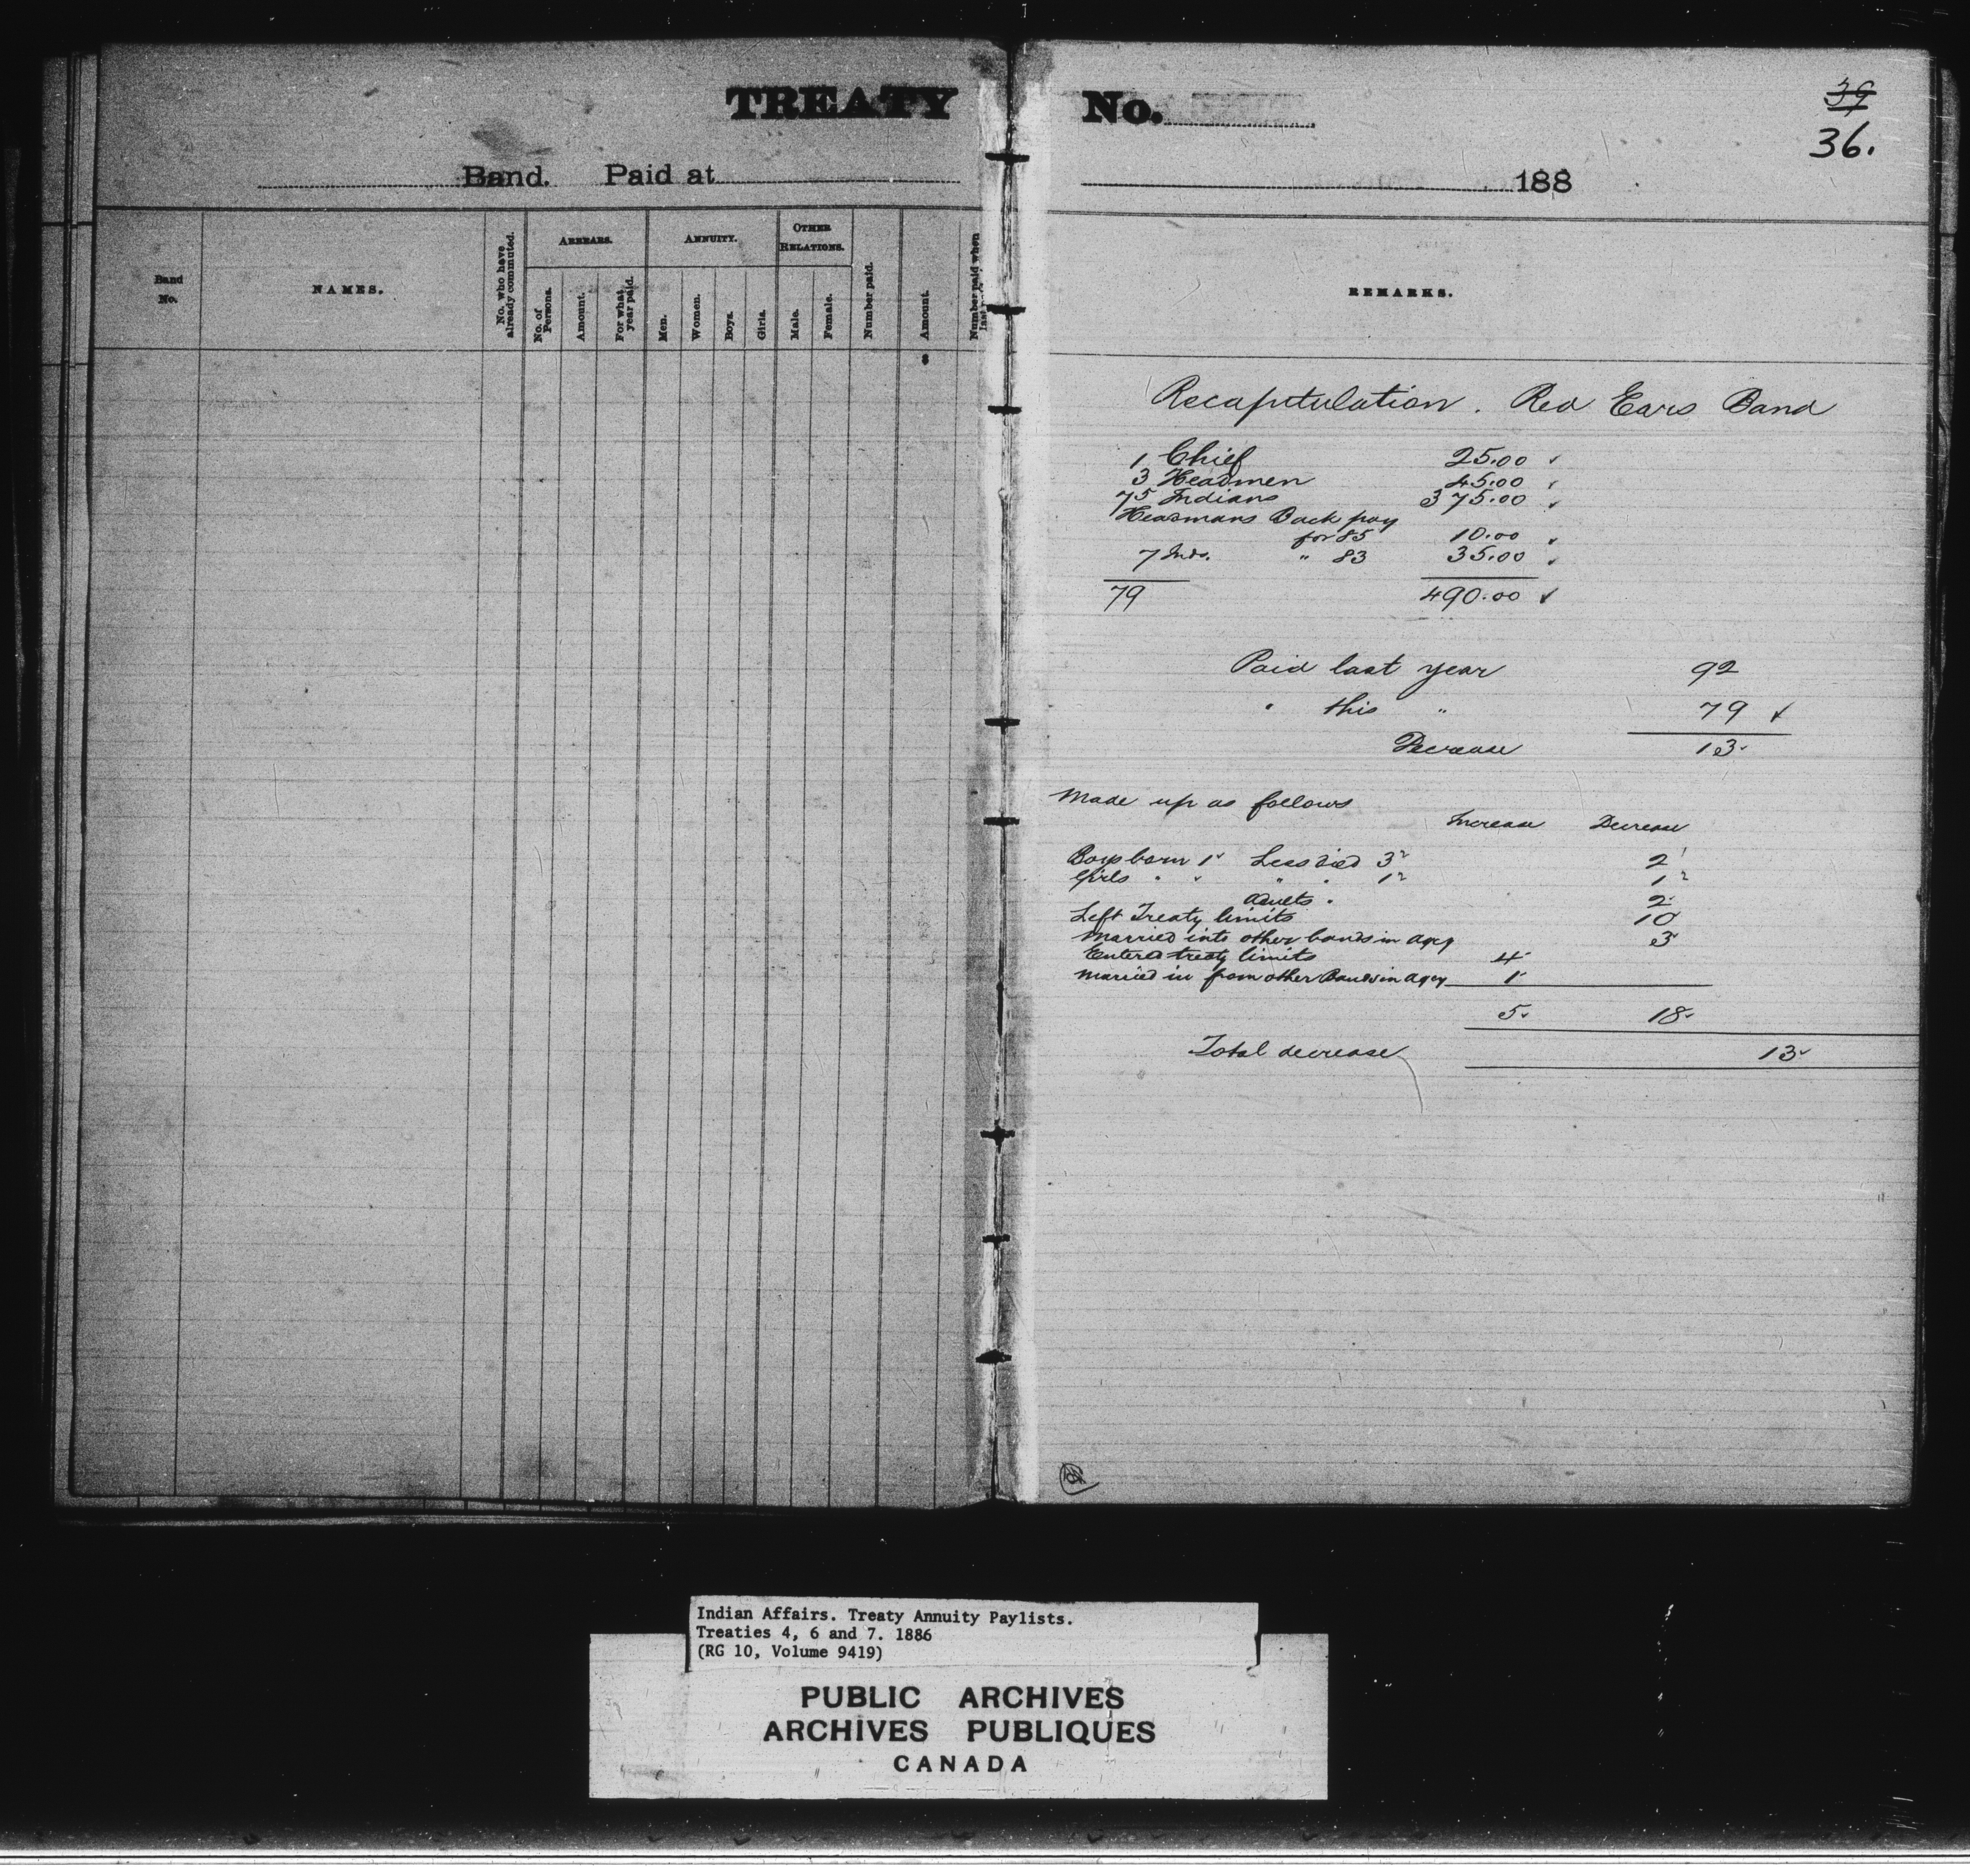 TREATY No.
39
36.
Band. Paid at 188
Band No.
NAMES.
No. who have already commuted.
ARREARS.
No. of Persons.
Amount.
For what year paid.
ANNUITY.
Men.
Women.
Boys.
Girls.
OTHER RELATIONS.
Male.
Female.
Number paid.
Amount.
Number paid when
REMARKS.
Recapitulation. Red Ears Band
1 Chief 25.00 ✓
3 Headmen 45.00 ✓
75 Indians 375.00 ✓
Headmans Back pay
for 85 10.00 ✓
7 Inds. " 83 35.00 ✓
79 490.00 ✓
Paid last year 92
" this " 79 ✓
Decrease 13
Made up as follows
Increase Decrease
Boys born 1 Less died 3 2
Girls " " " " 1 1
Adults " 2
Left Treaty limits 10
Married into other bands in agcy 3
Entered treaty limits 4
Married in from other Bands in agcy 1
5 18
Total decrease 13
Indian Affairs. Treaty Annuity Paylists.
Treaties 4, 6 and 7. 1886
(RG 10, Volume 9419)
PUBLIC ARCHIVES
ARCHIVES PUBLIQUES
CANADA